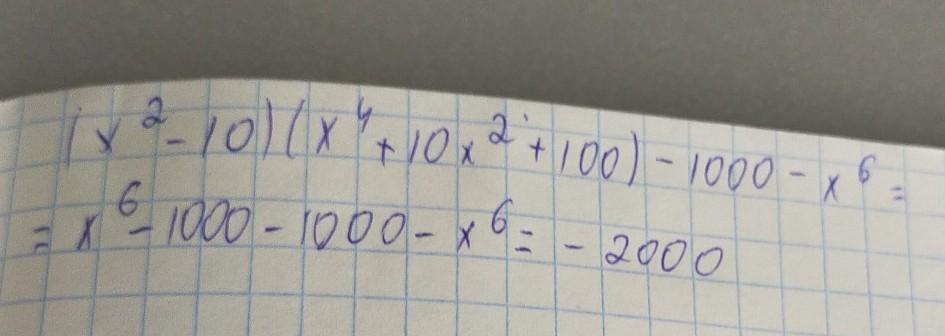 (x² - 10)(x⁴ + 10x² + 100) - 1000 - x⁶ =
= x⁶ - 1000 - 1000 - x⁶ = - 2000